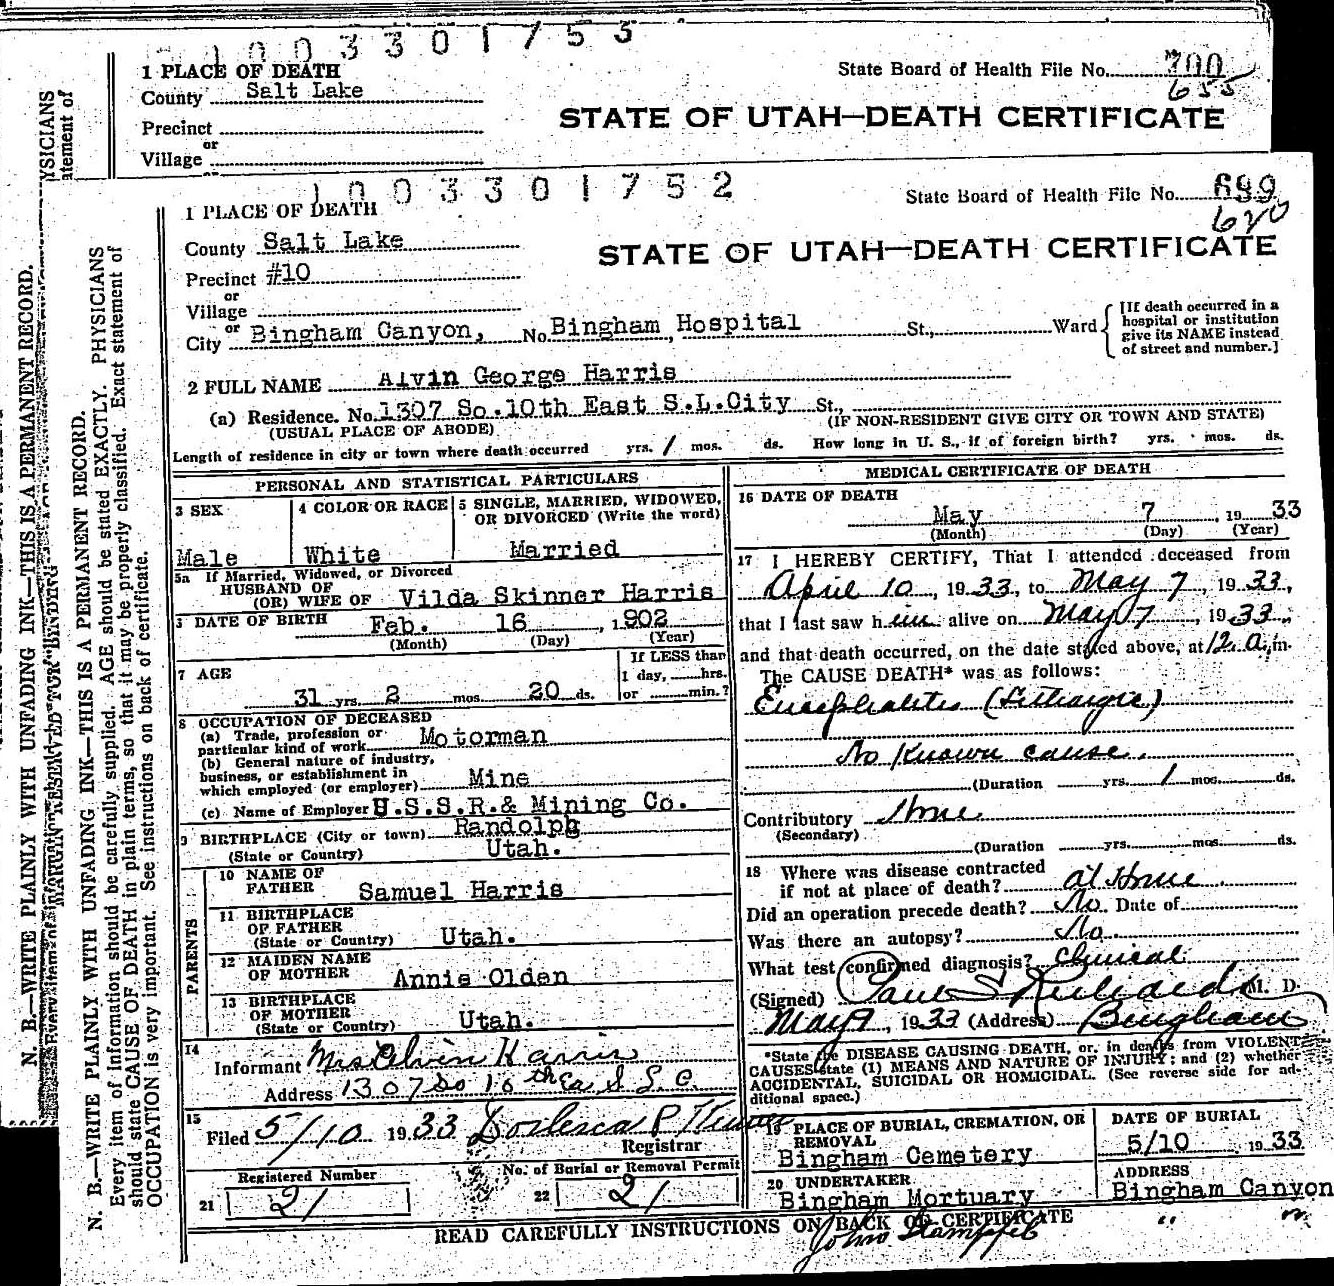 1003301753
1 PLACE OF DEATH
State Board of Health File No. 700
655
County Salt Lake
STATE OF UTAH—DEATH CERTIFICATE
Precinct
or
Village
1003301752
1 PLACE OF DEATH
State Board of Health File No. 699
620
County Salt Lake
STATE OF UTAH—DEATH CERTIFICATE
Precinct #10
or
Village
or
City Bingham Canyon, No. Bingham Hospital St., Ward
[If death occurred in a
hospital or institution
give its NAME instead
of street and number.]
2 FULL NAME Alvin George Harris
(a) Residence. No. 1307 So. 10th East S.L.City St.,
(USUAL PLACE OF ABODE) (IF NON-RESIDENT GIVE CITY OR TOWN AND STATE)
Length of residence in city or town where death occurred yrs. 1 mos. ds. How long in U. S., if of foreign birth? yrs. mos. ds.
PERSONAL AND STATISTICAL PARTICULARS
3 SEX
4 COLOR OR RACE
5 SINGLE, MARRIED, WIDOWED,
OR DIVORCED (Write the word)
Male
White
Married
5a If Married, Widowed, or Divorced
HUSBAND OF
(OR) WIFE OF Vilda Skinner Harris
DATE OF BIRTH Feb. 16, 1902
(Month) (Day) (Year)
7 AGE
If LESS than
1 day, hrs.
31 yrs. 2 mos. 20 ds. or min.?
8 OCCUPATION OF DECEASED
(a) Trade, profession or
particular kind of work Motorman
(b) General nature of industry,
business, or establishment in
which employed (or employer) Mine
(c) Name of Employer U.S.S.R.& Mining Co.
9 BIRTHPLACE (City or town) Randolph
(State or Country) Utah.
PARENTS
10 NAME OF
FATHER Samuel Harris
11 BIRTHPLACE
OF FATHER
(State or Country) Utah.
12 MAIDEN NAME
OF MOTHER Annie Olden
13 BIRTHPLACE
OF MOTHER
(State or Country) Utah.
14
Informant Mrs Alvin Harris
Address 1307 So 10th Ea. S. L. C.
15
Filed 5/10 1933
Registrar
Registered Number
21 21
No. of Burial or Removal Permit
22 21
MEDICAL CERTIFICATE OF DEATH
16 DATE OF DEATH
May 7, 1933
(Month) (Day) (Year)
17 I HEREBY CERTIFY, That I attended deceased from
April 10, 1933, to May 7, 1933,
that I last saw him alive on May 7, 1933,
and that death occurred, on the date stated above, at 12 a.m.
The CAUSE DEATH* was as follows:
Encephalitis (Lethargic)
No known cause.
(Duration yrs. 1 mos. ds.
Contributory None
(Secondary)
(Duration yrs. mos. ds.
18 Where was disease contracted
if not at place of death? at Home
Did an operation precede death? No. Date of
Was there an autopsy? No.
What test confirmed diagnosis? Clinical
(Signed) Paul S Richards M. D.
May 9, 1933 (Address) Bingham
*State the DISEASE CAUSING DEATH, or, in deaths from VIOLENT
CAUSES state (1) MEANS AND NATURE OF INJURY; and (2) whether
ACCIDENTAL, SUICIDAL OR HOMICIDAL. (See reverse side for ad-
ditional space.)
19 PLACE OF BURIAL, CREMATION, OR
REMOVAL
Bingham Cemetery
DATE OF BURIAL
5/10 1933
20 UNDERTAKER
Bingham Mortuary
ADDRESS
Bingham Canyon
READ CAREFULLY INSTRUCTIONS ON BACK OF CERTIFICATE
" "
John Stampfel
YSICIANS
atement of
N. B.—WRITE PLAINLY WITH UNFADING INK—THIS IS A PERMANENT RECORD.
MARGIN RESERVED FOR BINDING
N. B.—WRITE PLAINLY WITH UNFADING INK—THIS IS A PERMANENT RECORD.
Every item of information should be carefully supplied. AGE should be stated EXACTLY. PHYSICIANS
should state CAUSE OF DEATH in plain terms, so that it may be properly classified. Exact statement of
OCCUPATION is very important. See instructions on back of certificate.